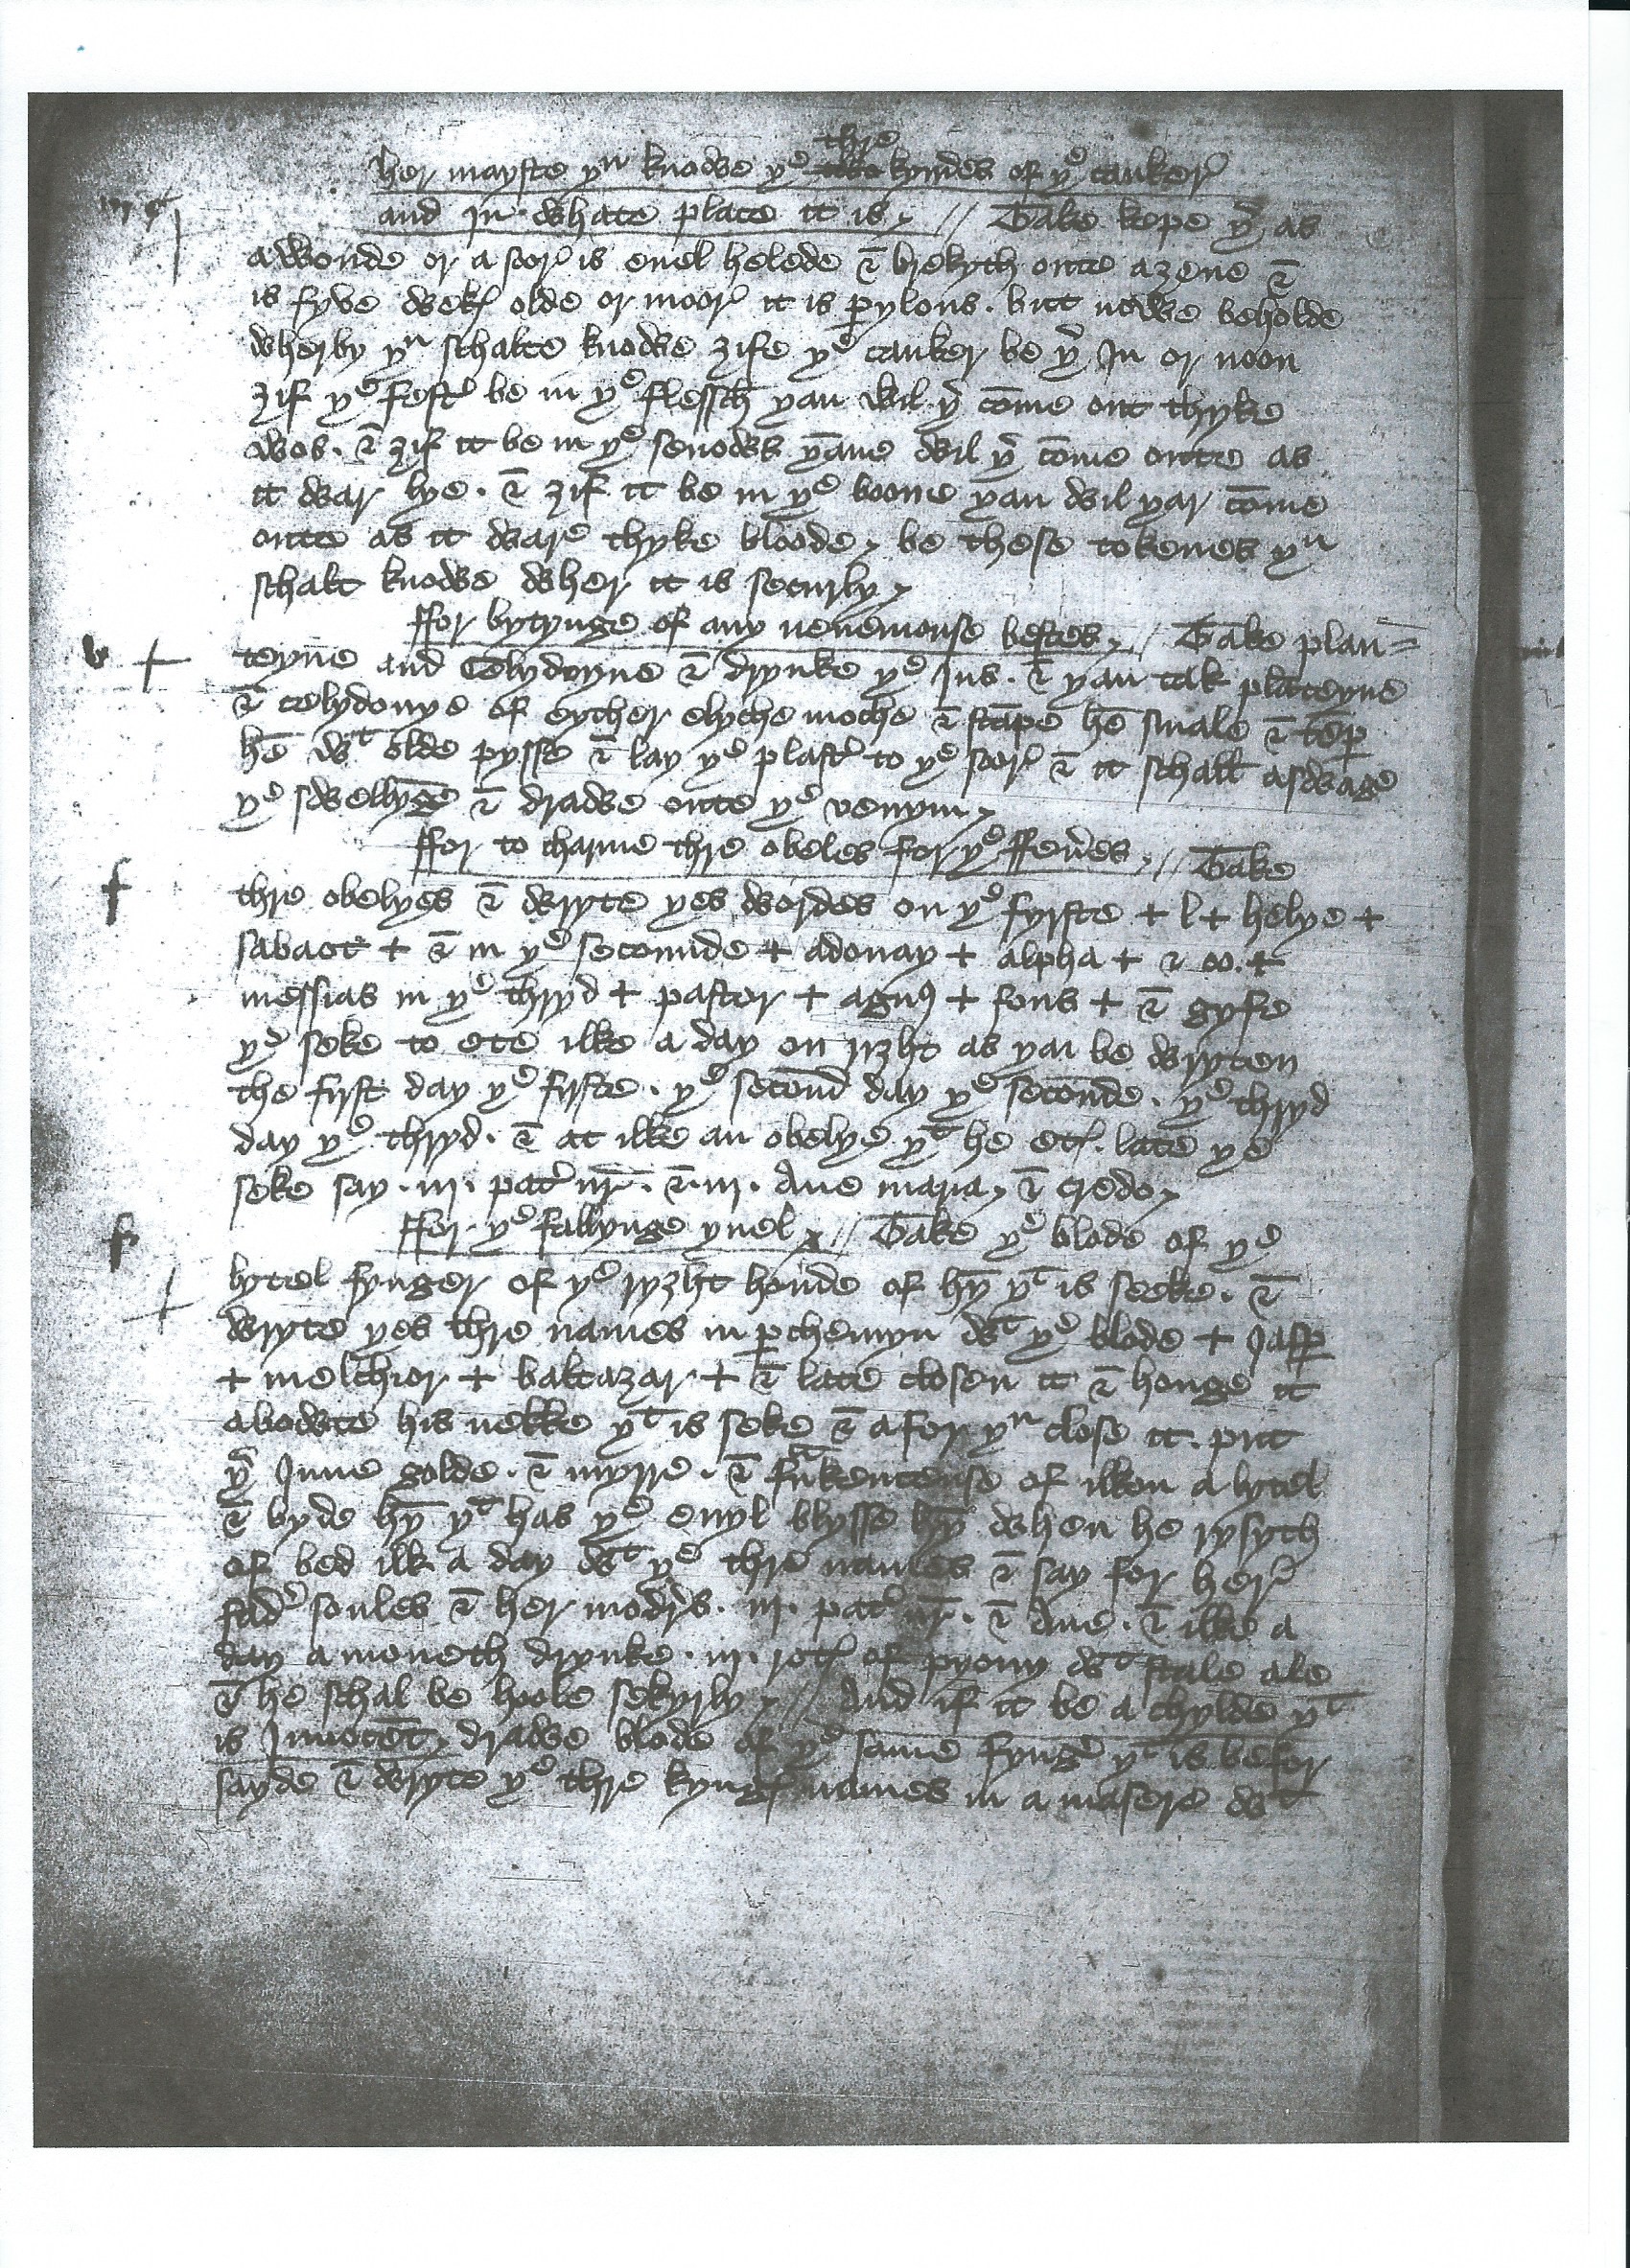 thre
her mayste yu knowe ye two kyndes of ye canker
and In whate place it is // Take kepe yr as
a wonde or a soor is euel helede & brekyth oute azene &
is fyve wekes olde or moor it is pylous . but nowe beholde
wherby yu schalte knowe zife ye canker be yr In or noon
zif ye fester be in ye flessch yan wil yr come out thyke
wos . & zif it be in ye senows yane wil yr come oute as
it war lye . & zif it be in ye boone yan wil yar come
oute as it ware thyke bloode , be these tokenes yu
schalt knowe wher it is securly ,
ffor bytynge of any venemouse bestes , // Take plan=
v + teyne and Celydoyne & drynke ye Jus . & yan tak planteyne
& celydonye of eyther elyche moche & stape he smale & tep
he wt olde pysse & lay ye plaster to ye soor & it schall aswage
ye swellyge & drawe oute ye venym ,
ffor to charme thre obeles for ye ffeueres , // Take
f thre obelyes & wryte yes wordes on ye fyrste + l + helye +
sabaot + & in ye secounde + adonay + alpha + & oo . +
messias in ye thryd + pastor + agnus + fons + & gyfe
ye seke to ete ilke a day on ryzht as yai be wryten
the fyrst day ye fyrste . ye second day ye seconde . ye thryd
day ye thryd . & at ilke an obelye yt he etes . late ye
seke say . iij . pater nr . & . iij . Aue maria , & credo ,
f ffor ye fallynge yuel , // Take ye blode of ye
+ lytel fynger of ye ryzht honde of hy yt is seeke . &
wryte yes thre names in pchemyn wt ye blode + Jasp
+ melchior + baltazar + & late closen it & honge it
abowte his nekke yt is seke & afor yu close it . put
yr Inne golde . & myrre . & frankencense of ilkon a lytel
& byde hy yt has ye euyl blysse hy when he rysyth
of bed ilk a day wt ye thre names & say for her
fader soules & her moders . iij . pater nr . & Aue . & ilke a
day a moneth drynke . iij . rotes of pyony wt stale ale
& he schal be hoole sekyrly , // And if it be a chylde yt
is Innocet , drawe blode of ye same fynger yt is befor
sayde & wryte ye thre kynges names in a masere wt